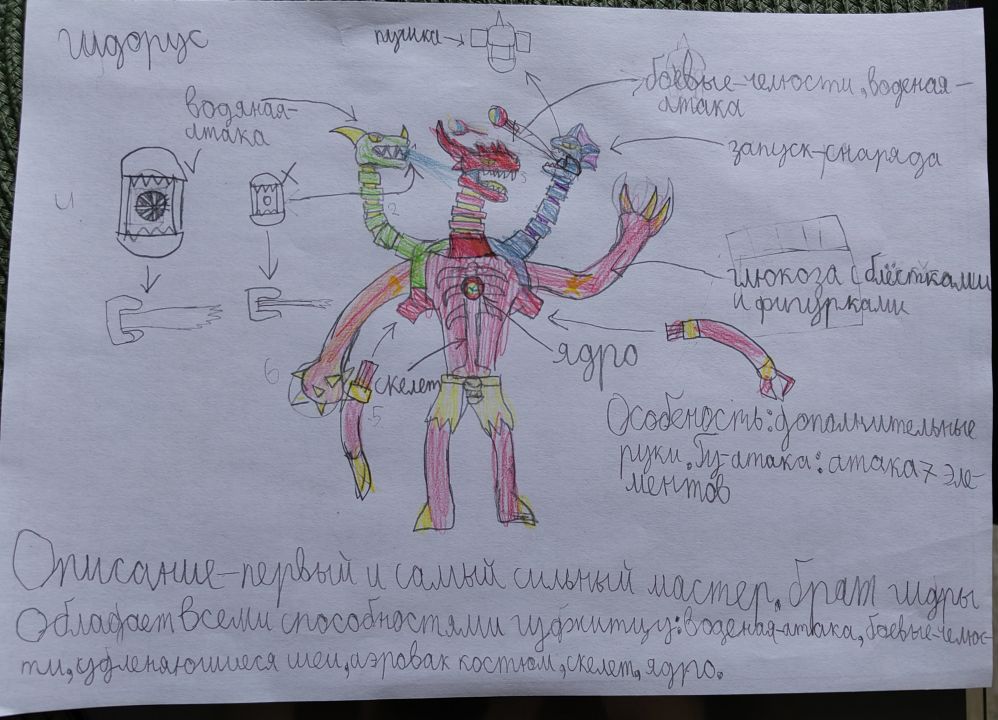 гидорус
пушка
боевые-челюсти, воденая-
атака
водяная-
атака
запуск-снаряда
и
глюкоза с блёстками
и фигурками
ядро
скелет
2
3
6
5
Особеность: дополнительные
руки. Гу-атака: атака 7 эле-
ментов
Описание-первый и самый сильный мастер. брат гидры
Обладает всеми способностями гуджитцу: воденая-атака, боевые-челюс-
ти, удленяющиеся шеи, аэровак костюм, скелет, ядро.